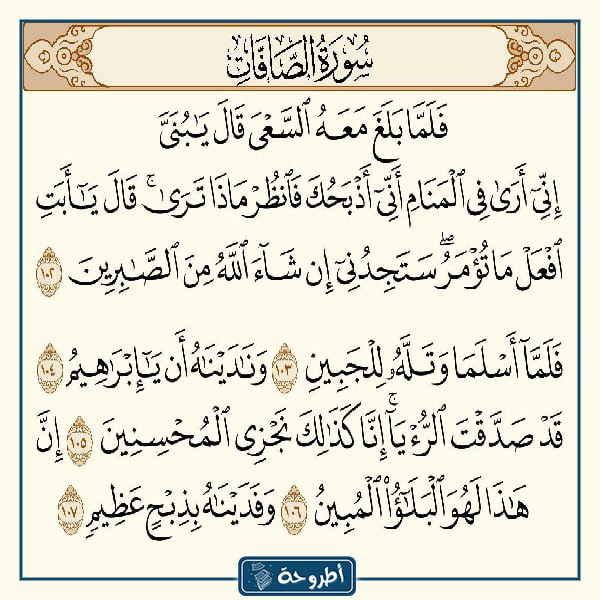 سُورَةُ الصَّافَّاتِ
فَلَمَّا بَلَغَ مَعَهُ ٱلسَّعْىَ قَالَ يَٰبُنَىَّ
إِنِّىٓ أَرَىٰ فِى ٱلْمَنَامِ أَنِّىٓ أَذْبَحُكَ فَٱنظُرْ مَاذَا تَرَىٰ ۚ قَالَ يَٰٓأَبَتِ
ٱفْعَلْ مَا تُؤْمَرُ ۖ سَتَجِدُنِىٓ إِن شَآءَ ٱللَّهُ مِنَ ٱلصَّٰبِرِينَ ١٠٢
فَلَمَّآ أَسْلَمَا وَتَلَّهُۥ لِلْجَبِينِ ١٠٣ وَنَٰدَيْنَٰهُ أَن يَٰٓإِبْرَٰهِيمُ ١٠٤
قَدْ صَدَّقْتَ ٱلرُّءْيَآ ۚ إِنَّا كَذَٰلِكَ نَجْزِى ٱلْمُحْسِنِينَ ١٠٥ إِنَّ
هَٰذَا لَهُوَ ٱلْبَلَٰٓؤُا۟ ٱلْمُبِينُ ١٠٦ وَفَدَيْنَٰهُ بِذِبْحٍ عَظِيمٍ ١٠٧
أطروحة